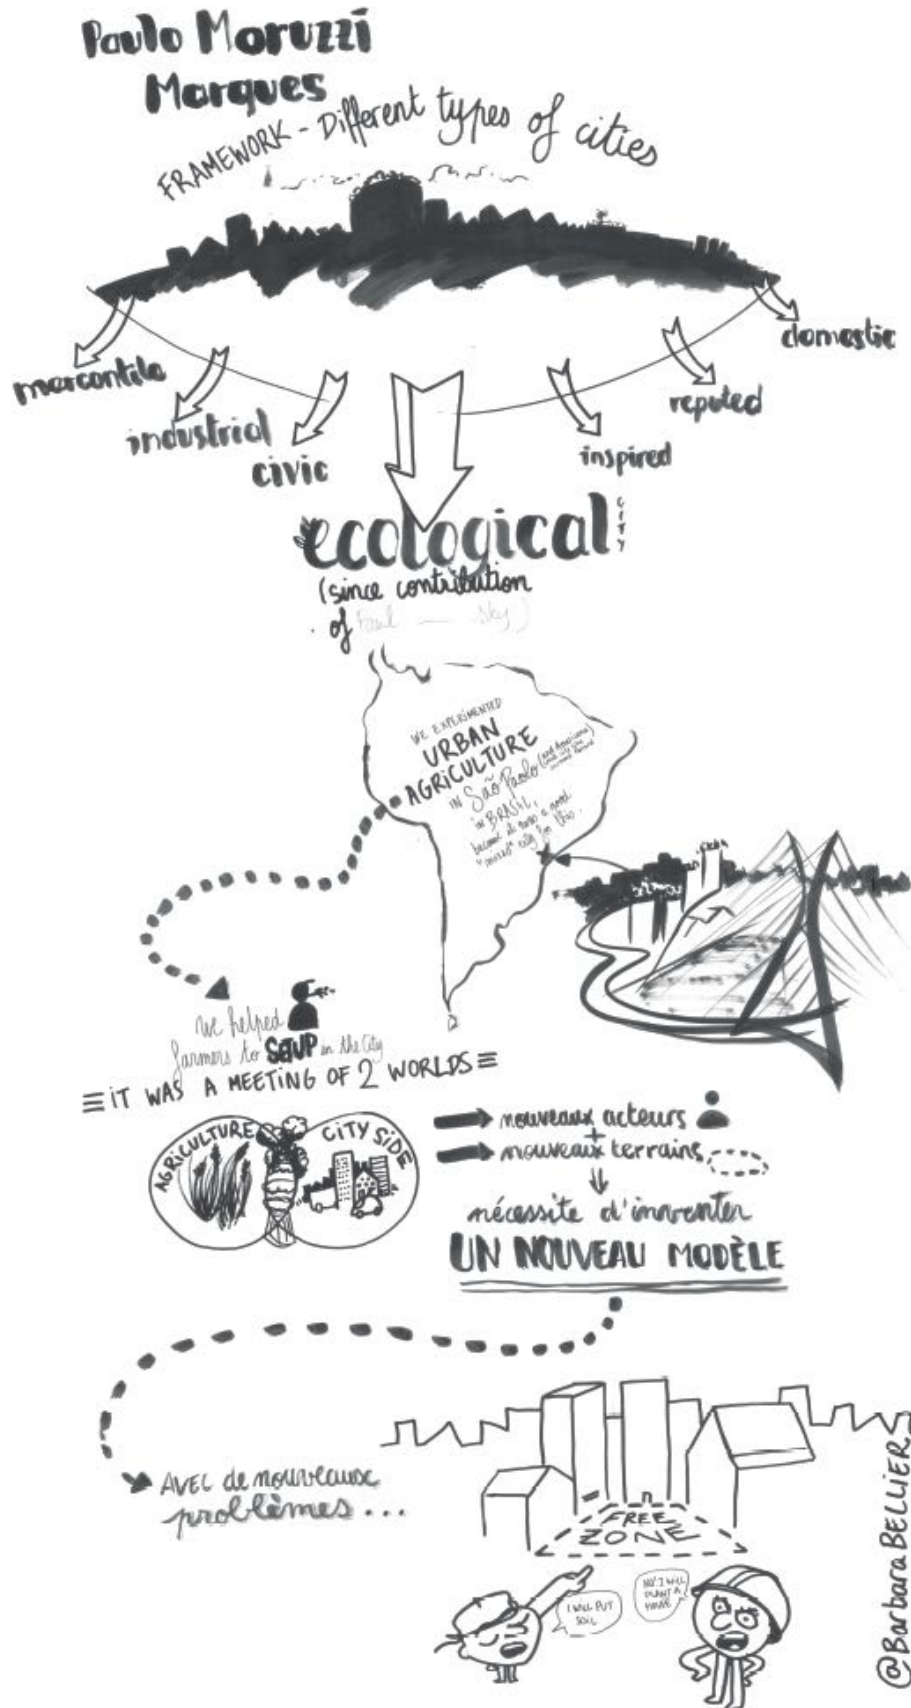 Paulo Moruzzi
Marques
FRAMEWORK - Different types of cities
mercantile
industrial
civic
domestic
reputed
inspired
ecological CITY
(since contribution
of
WE EXPERIMENTED
URBAN
AGRICULTURE
IN São Paolo
in BRASIL,
because it was a good
"mixed" city for this.
We helped
farmers to SETUP in the City
IT WAS A MEETING OF 2 WORLDS
AGRICULTURE
CITY SIDE
nouveaux acteurs
+
nouveaux terrains
nécessite d'inventer
UN NOUVEAU MODÈLE
AVEC de nouveaux
problèmes...
FREE
ZONE
I WILL PUT
SOIL
NO! I WILL
PLANT A
HOUSE
@Barbara BELLIER